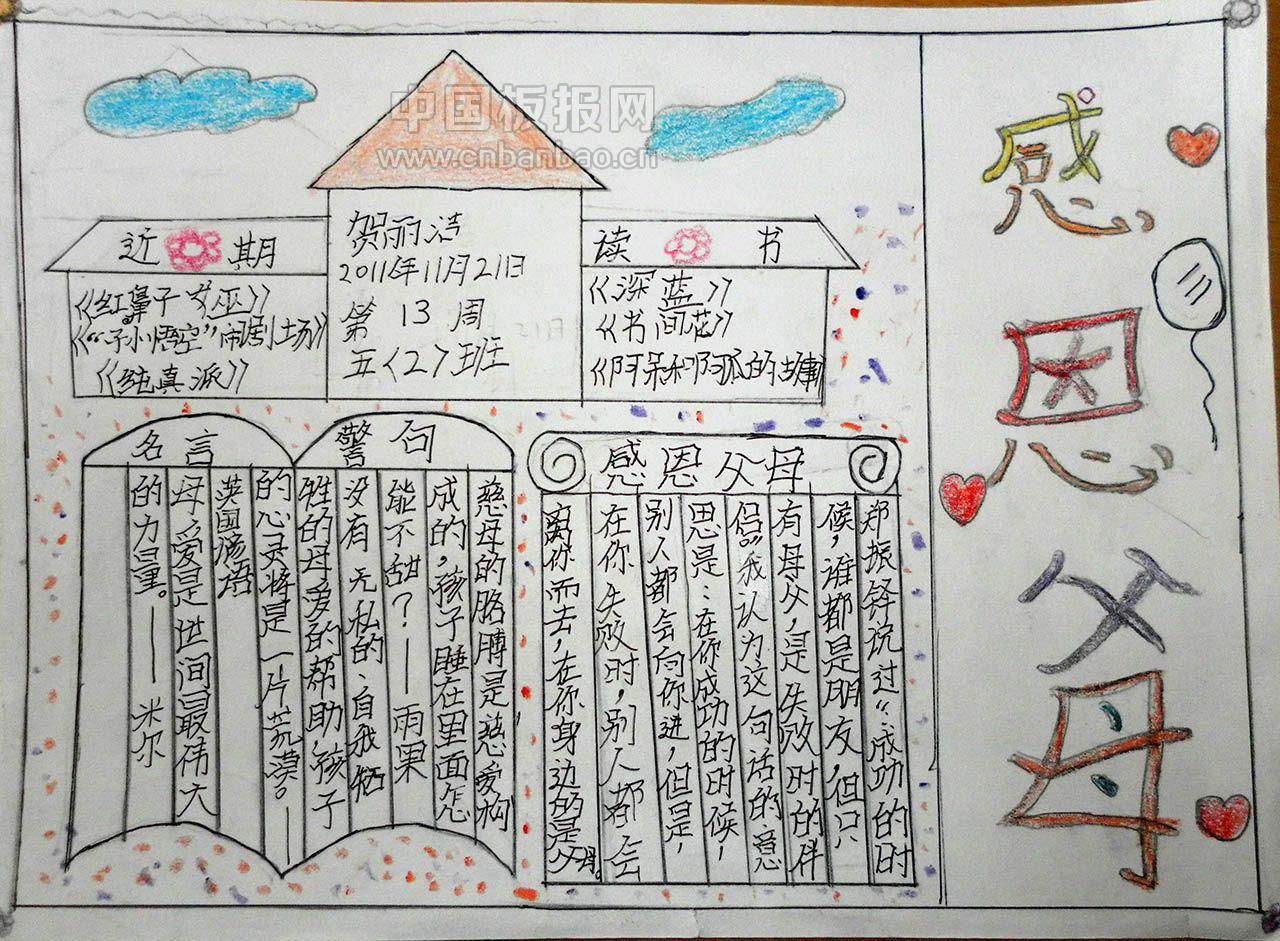 中国板报网
www.cnbanbao.cn
感恩父母
近期
《红鼻子女巫》
《“子小悟空”闹剧土场》
《纯真派》
贺丽洁
2011年11月21日
第13周
五〈2〉班
读书
《深蓝》
《书间花》
《阿呆和阿瓜的故事》
名言警句
慈母的胳膊是慈爱构
成的,孩子睡在里面怎
能不甜?——雨果
没有无私的、自我牺
牲的母爱的帮助,孩子
的心灵将是一片荒漠。——
英国谚语
母爱是世间最伟大
的力量。——米尔
感恩父母
郑振铎说过“:成功的时
候,谁都是朋友,但只
有母父,是失败时的伴
侣。”我认为这句话的意
思是:在你成功的时候,
别人都会向你进,但是,
在你失败时,别人都会
离你而去,在你身边的是父母。